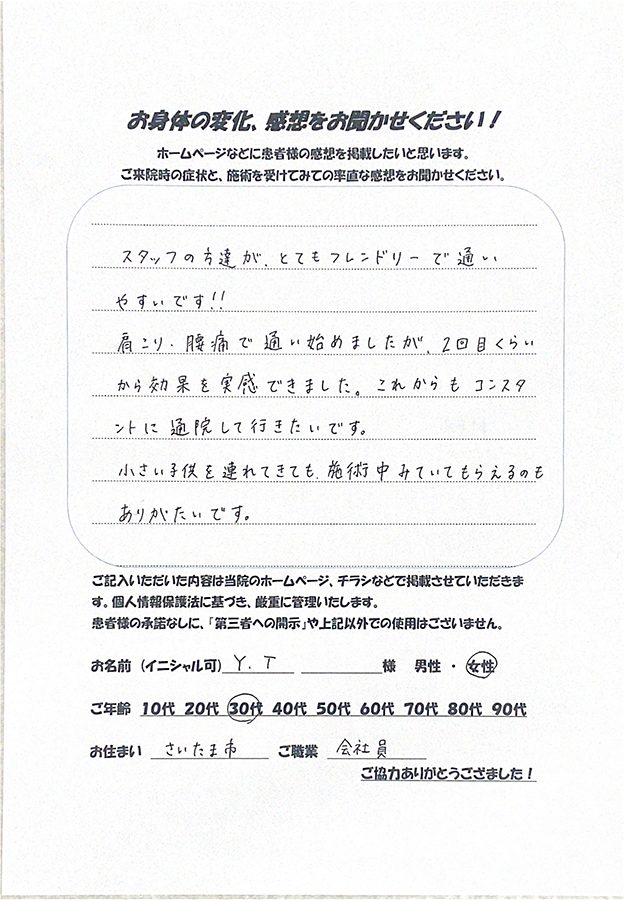 お身体の変化、感想をお聞かせください！
ホームページなどに患者様の感想を掲載したいと思います。
ご来院時の症状と、施術を受けてみての率直な感想をお聞かせください。
スタッフの方達が、とてもフレンドリーで通い
やすいです!!
肩こり・腰痛で通い始めましたが、2回目くらい
から効果を実感できました。これからもコンスタ
ントに通院して行きたいです。
小さい子供を連れてきても、施術中みていてもらえるのも
ありがたいです。
ご記入いただいた内容は当院のホームページ、チラシなどで掲載させていただきま
す。個人情報保護法に基づき、厳重に管理いたします。
患者様の承諾なしに、「第三者への開示」や上記以外での使用はございません。
お名前（イニシャル可） Y. T 様 男性 ・ 女性
ご年齢 10代 20代 30代 40代 50代 60代 70代 80代 90代
お住まい さいたま市 ご職業 会社員
ご協力ありがとうござました！